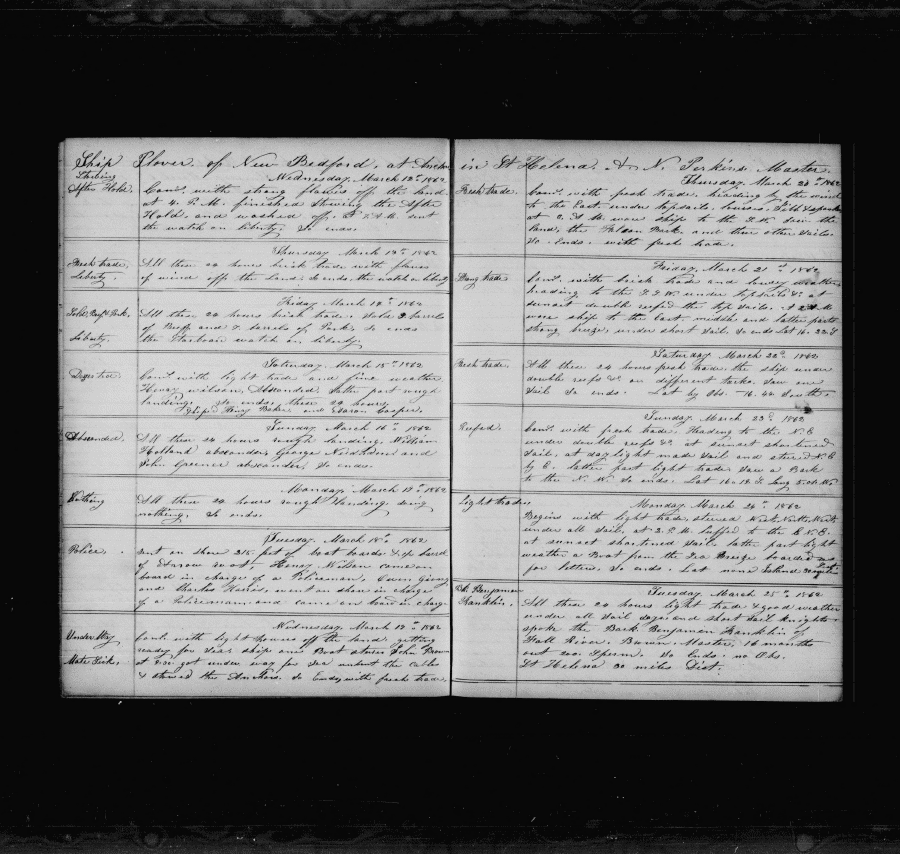 Ship Plover of New Bedford, at Anchor
Wednesday, March 12th 1862
Stowing
After Hold.
Comd. with strong flawes off the land
at 4. P.M. finished Stowing the After
Hold, and washed off. at A.M. sent
the watch on liberty. So ends.
Thursday March 13th 1862
Fresh trade.
Liberty.
All these 24 hours brisk trade with flaws
of wind off the land. So ends. the watch on liberty
Friday March 1862
Beef & Pork.
Liberty.
All these 24 hours brisk trade. barrels
of Beef and barrels of Pork. So ends
the Starboard watch on liberty.
Saturday. March 15th 1862
Comd. with light trade and fine weather
Henry wilson, Absconded. latter part rough
landing. So ends, these 24 hours.
Shiped Henry Baker and Aaron Cooper.
Sunday March 16th 1862
Absconded.
All these 24 hours rough landing. William
Holland absconder, George and
John absconder. So ends.
Monday March 17th 1862
Nothing
All these 24 hours rough landing. doing
nothing. So ends.
Tuesday. March 18th 1862
Police
Sent on shore 215 feet of boat boards
of root. Henry came on
board in charge of a Policeman, Owen
and Charles Harris, went on shore in charge
of a Policeman and came on board in charge
Wednesday March 19th 1862
Under Way
Mate Sick.
Comd. with light off the land. getting
ready for Sea. ship one Boat John Brown
at got under way for Sea unbent the cables
& stowed the Anchors. So Ends, with fresh trade.
in St Helena. A. N. Perkins. Master
Thursday. March 20th 1862
Fresh trade.
Comd. with fresh trade, heading by the wind
to the East. under topsails,
at 2. A.M. wore ship to the S.W. Saw the
land, the Bark. and three other Sails.
So. Ends. with fresh trade.
Friday March 21st 1862
Strong trade
Comd. with brisk trade and weather
heading to the S.S.W. under topsails &c at
sunset double reefed the top Sails. at A.M.
wore ship to the East. middle and latter parts
strong breeze, under short Sail. So ends Lat 16.
Saturday March 22nd 1862
Fresh trade.
All these 24 hours fresh trade. the ship under
double reefs &c on different tacks. Saw one
Sail So ends. Lat by Obs. 16.42 South.
Sunday March 23rd 1862
Reefed.
Comd. with fresh trade, Heading to the N.E
under double reefs &c. at sunset shortened
Sail, at day light made Sail and steered N.E
by E. latter part light trade Saw a Bark
to the N.W. So ends. Lat 16. Long
Monday March 24th 1862
Light trades
Begins with light trade, steered West. North. West.
under all Sail, at 2. P.M. luffed to the E.N.E.
at sunset shortened Sail. latter part light
weather a Boat from the Sea Breeze boarded us
for letters. So ends. Lat none Island miles
Tuesday March 25th 1862
Benjamin
Franklin.
All these 24 hours light trade & good weather
under all Sail days and short Sail nights
spoke the Bark Benjamin Franklin of
Fall River. Master, 16 months
out 200. Sperm. So Ends. no Obs.
St Helena 30 miles Dist.